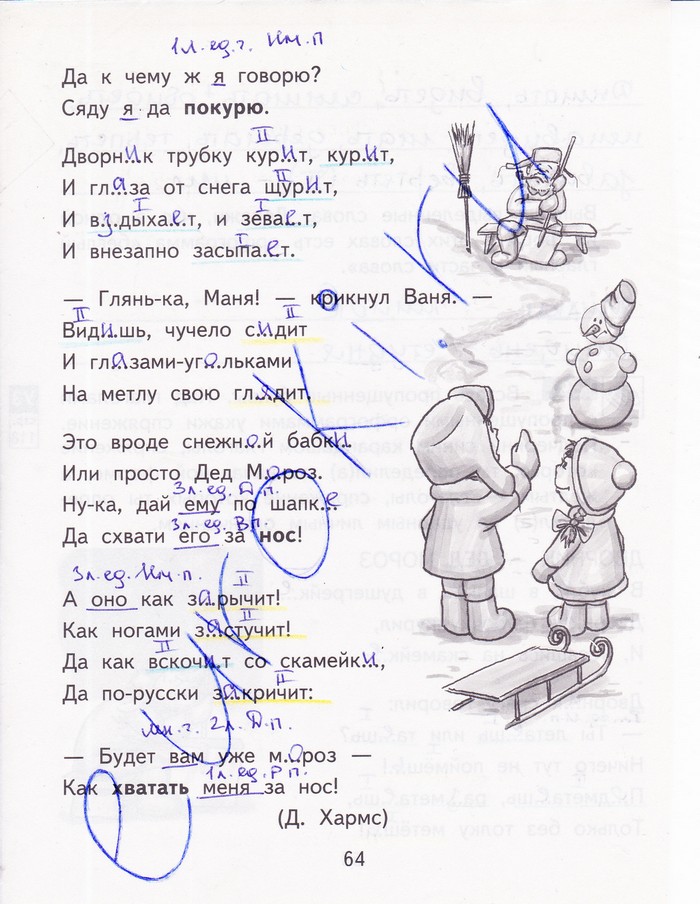 1л. ед. ч. Им. п
Да к чему ж я говорю?
Сяду я да покурю.
II
Дворник трубку курит, курит,
II
И глаза от снега щурит,
I I
И вздыхает, и зевает,
I
И внезапно засыпает.
— Глянь-ка, Маня! — крикнул Ваня. —
II II
Видишь, чучело сидит
И глазами-угольками
На метлу свою глядит.
Это вроде снежной бабки
Или просто Дед Мороз.
3л. ед. Д. п.
Ну-ка, дай ему по шапке
3л. ед. В. п.
Да схвати его за нос!
3л. ед. Им. п.
II
А оно как зарычит!
II
Как ногами застучит!
II
Да как вскочит со скамейки,
II
Да по-русски закричит:
мн. ч. 2л. Д. п.
— Будет вам уже мороз —
1л. ед. Р п.
Как хватать меня за нос!
(Д. Хармс)
64